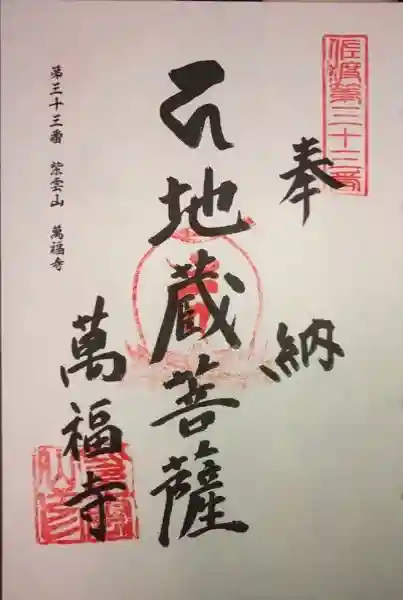 佐渡第三十三番
奉納
地蔵菩薩
萬福寺
第三十三番 紫雲山 萬福寺